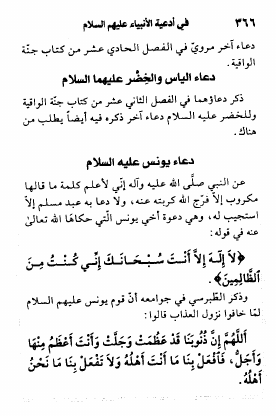 ٣٦٦ في أدعية الأنبياء عليهم السلام
دعاء آخر مرويّ في الفصل الحادي عشر من كتاب جنّة
الواقية.
دعاء الياس والخِضْر عليهما السلام
ذكر دعاؤهما في الفصل الثاني عشر من كتاب جنّة الواقية
وللخضر عليه السلام دعاء آخر ذكره فيه أيضاً يطلب من
هناك.
دعاء يونس عليه السلام
عن النبي صلَّى الله عليه وآله إنّي لأعلم كلمة ما قالها
مكروب إلاّ فرّج الله كربته عنه، ولا دعا به عبد مسلم إلاّ
استجيب له، وهي دعوة أخي يونس الّتي حكاها الله تعالىٰ
عنه في قوله:
﴿لاَ إِلَهَ إِلاَّ أَنْتَ سُبْحَانَكَ إِنِّي كُنْتُ مِنَ
الظَّالِمِينَ﴾
وذكر الطبرسي في جوامعه أنّ قوم يونس عليهم السلام
لمّا خافوا نزول العذاب قالوا:
أَللَّهُمَّ إِنَّ ذُنُوبَنَا قَدْ عَظُمَتْ وَجَلَّتْ وَأَنْتَ أَعْظَمُ مِنْهَا
وَأَجَلُّ، فَافْعَلْ بِنَا مَا أَنْتَ أَهْلُهُ وَلاَ تَفْعَلْ بِنَا مَا نَحْنُ
أَهْلُهُ.